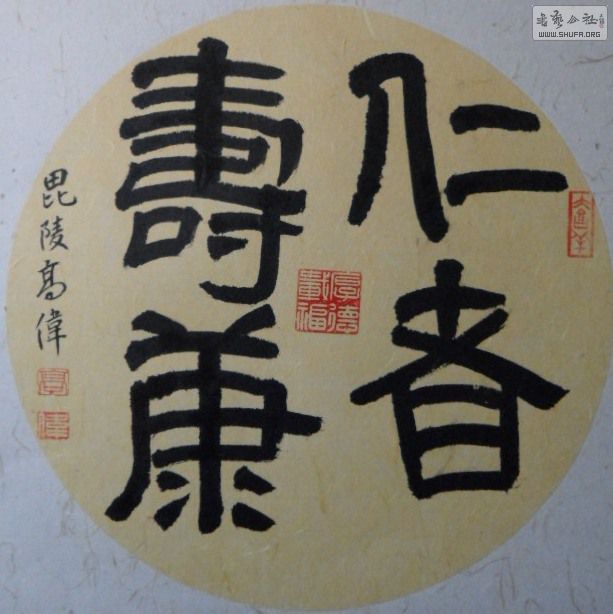 仁者
壽康
毘陵高偉
厚德載福
WWW.SHUFA.ORG